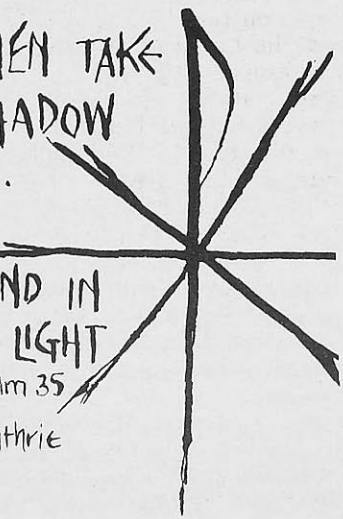 EN TAKE
ADOW
.
ND IN
LIGHT
lm 35
thrie